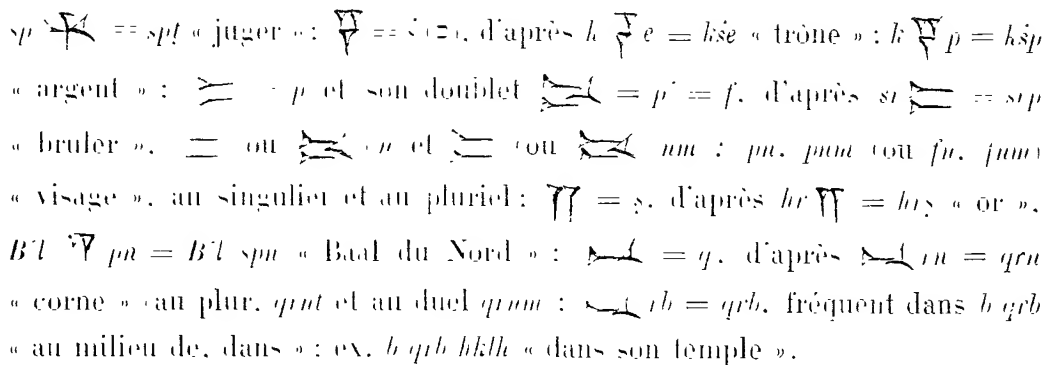 sp 𐎉 = spṭ « juger » : 𐎒 = ṡ, d'après k 𐎒 e = kṡe « trône » : k 𐎒 p = kṡp
« argent » : 𐎔 = p et son doublet = p' = f, d'après sr 𐎔 = srp
« bruler », 𐎔 ou n et 𐎔 (ou nm : pn, pnm (ou fn, fnm)
« visage », au singulier et au pluriel : 𐎕 = ṣ, d'après hr 𐎕 = hrṣ « or »,
B'l 𐎕 pn = B'l ṣpn « Baal du Nord » : 𐎖 = q, d'après 𐎖 rn = qrn
« corne » (au plur. qrnt et au duel qrnm : 𐎖 rb = qrb, fréquent dans b qrb
« au milieu de, dans » : ex. b qrb hklh « dans son temple ».